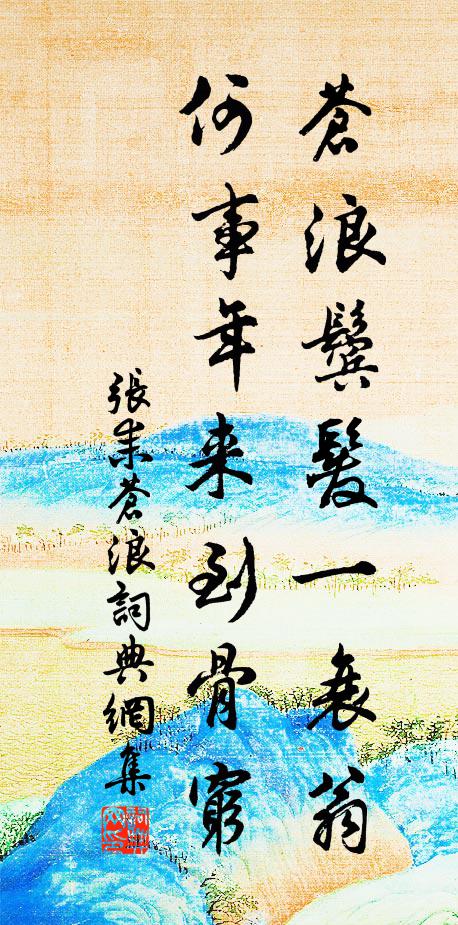 蒼浪鬢髮一衰翁
何事年来到骨窮
張耒蒼浪詞典網集